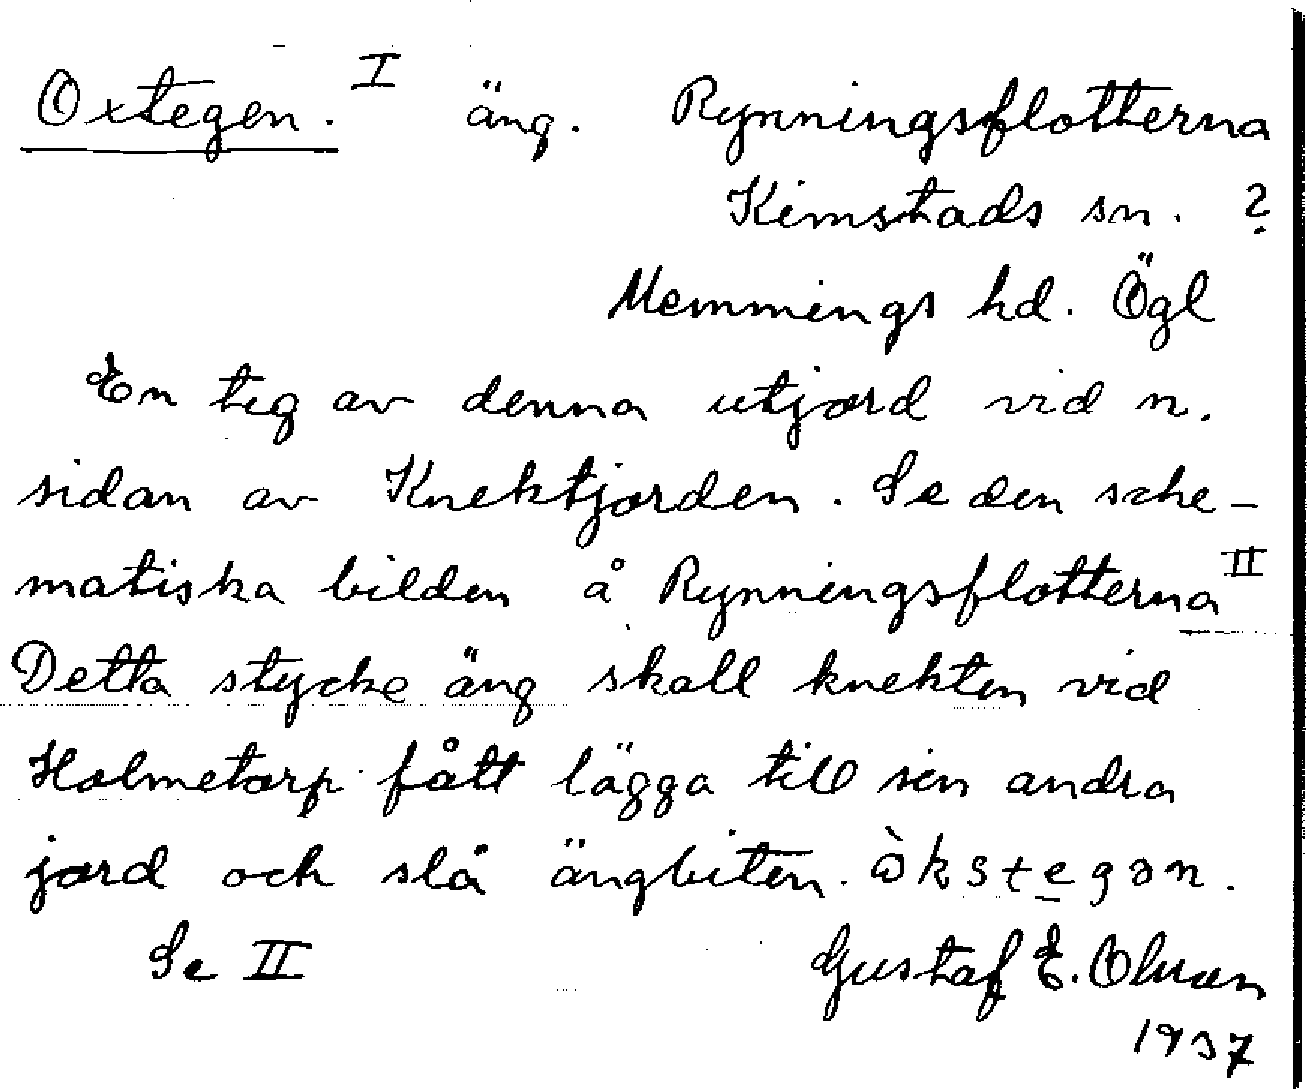 Oxtegen. I äng. Rynningsflotterna
Kimstads sn. ?
Memmings hd. Ögl
En teg av denna utjord vid n.
sidan av Knektjorden. Se den sche-
matiska bilden å Rynningsflotterna II
Detta stycke äng skall knekten vid
Holmetorp fått lägga till sin andra
jord och slå ängbiten. òkstegən.
Se II Gustaf E. Olsson
1937